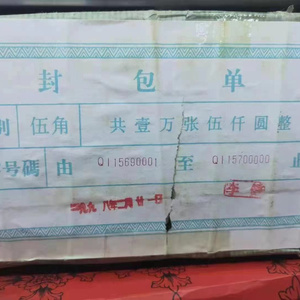 封包单
别 伍角 共壹万张伍仟圆整
号碼由 Q115680001 至 Q115700000 止
八年二月廿一日